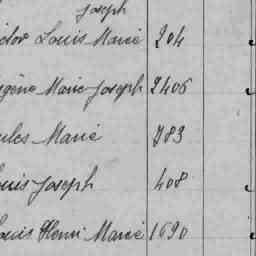 Joseph
ictor Louis Marie 204
ugène Marie Joseph 2406
ules Marie 783
ouis Joseph 408
Louis Henri Marie 1690